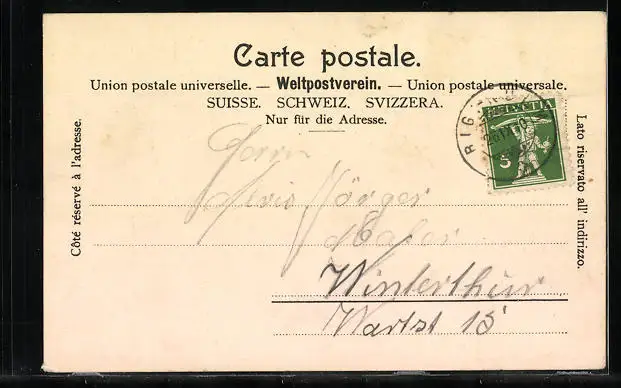 Carte postale.
Union postale universelle. — Weltpostverein. — Union postale universale.
SUISSE. SCHWEIZ. SVIZZERA.
Nur für die Adresse.
Côté réservé à l'adresse.
Lato riservato all' indirizzo.
HELVETIA
5
RIGI
Herrn
Maler
Winterthur
Wartst 15